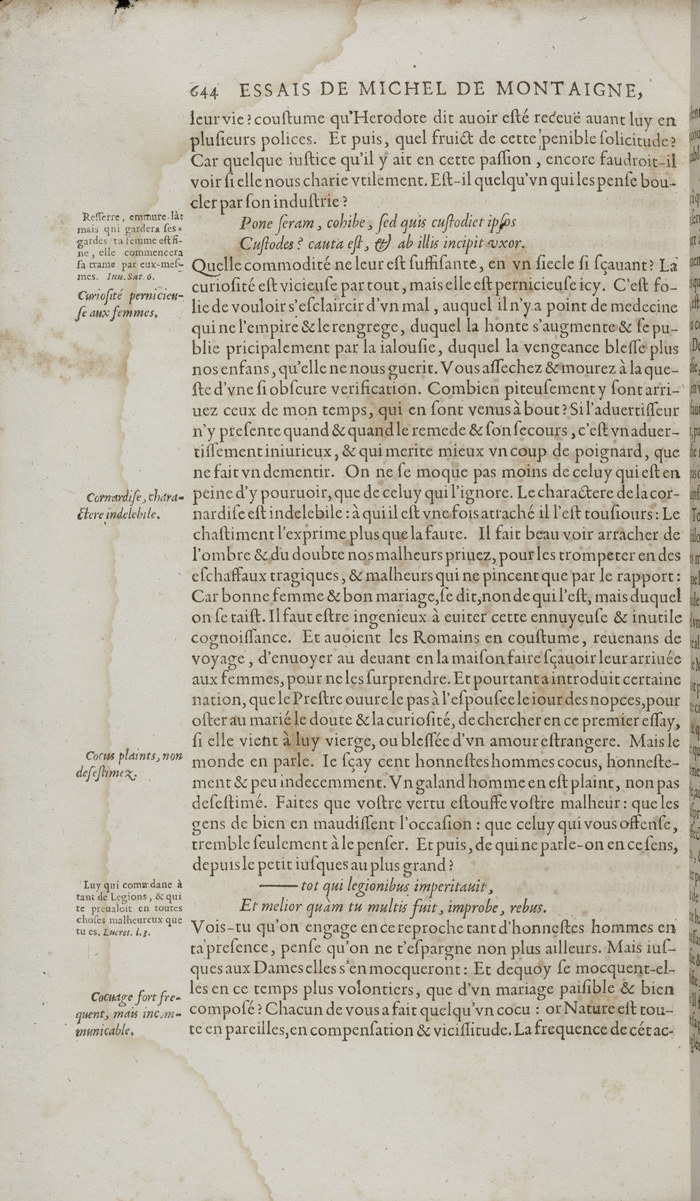 644 ESSAIS DE MICHEL DE MONTAIGNE,
leur vie? couſtume qu'Herodote dit auoir eſté receuë auant luy en
pluſieurs polices. Et puis, quel fruict de cette penible ſolicitude?
Car quelque iuſtice qu'il y ait en cette paſſion, encore faudroit-il
voir ſi elle nous charie vtilement. Eſt-il quelqu'vn qui les penſe bou-
cler par ſon induſtrie?
Pone ſeram, cohibe, ſed quis cuſtodiet ipſos
Cuſtodes? cauta eſt, & ab illis incipit vxor.
Reſſerre, emmure-la:
mais qui gardera ſes
gardes? ta femme eſt fi-
ne, elle commencera
ſa trame par eux-meſ-
mes. Iuu. Sat. 6.
Quelle commodité ne leur eſt ſuffiſante, en vn ſiecle ſi ſçauant? La
Curioſité pernicieu-
ſe aux femmes.
curioſité eſt vicieuſe par tout, mais elle eſt pernicieuſe icy. C'eſt fo-
lie de vouloir s'eſclaircir d'vn mal, auquel il n'y a point de medecine
qui ne l'empire & le rengrege, duquel la honte s'augmente & ſe pu-
blie pricipalement par la ialouſie, duquel la vengeance bleſſe plus
nos enfans, qu'elle ne nous guerit. Vous aſſechez & mourez à la que-
ſte d'vne ſi obſcure verification. Combien piteuſement y ſont arri-
uez ceux de mon temps, qui en ſont venus à bout? Si l'aduertiſſeur
n'y preſente quand & quand le remede & ſon ſecours, c'eſt vn aduer-
tiſſement iniurieux, & qui merite mieux vn coup de poignard, que
ne fait vn dementir. On ne ſe moque pas moins de celuy qui eſt en
Cornardiſe, chara-
ctere indelebile.
peine d'y pouruoir, que de celuy qui l'ignore. Le charactere de la cor-
nardiſe eſt indelebile: à qui il eſt vne fois atraché il l'eſt touſiours: Le
chaſtiment l'exprime plus que la faute. Il fait beau voir arracher de
l'ombre & du doubte nos malheurs priuez, pour les trompeter en des
eſchaffaux tragiques, & malheurs qui ne pincent que par le rapport:
Car bonne femme & bon mariage, ſe dit, non de qui l'eſt, mais duquel
on ſe taiſt. Il faut eſtre ingenieux à euiter cette ennuyeuſe & inutile
cognoiſſance. Et auoient les Romains en couſtume, reuenans de
voyage, d'enuoyer au deuant en la maiſon faire ſçauoir leur arriuée
aux femmes, pour ne les ſurprendre. Et pourtant a introduit certaine
nation, que le Preſtre ouure le pas à l'eſpouſee le iour des nopces, pour
oſter au marié le doute & la curioſité, de chercher en ce premier eſſay,
ſi elle vient à luy vierge, ou bleſſée d'vn amour eſtrangere. Mais le
Cocus plaints, non
deſeſtimez.
monde en parle. Ie ſçay cent honneſtes hommes cocus, honneſte-
ment & peu indecemment. Vn galand homme en eſt plaint, non pas
deſeſtimé. Faites que voſtre vertu eſtouffe voſtre malheur: que les
gens de bien en maudiſſent l'occaſion: que celuy qui vous offenſe,
tremble ſeulement à le penſer. Et puis, de qui ne parle-on en ce ſens,
depuis le petit iuſques au plus grand?
—— tot qui legionibus imperitauit,
Et melior quam tu multis fuit, improbe, rebus.
Luy qui comādane à
tant de Legions, & qui
te preualoit en toutes
choſes malheureux que
tu es. Lucret. l. 3.
Vois-tu qu'on engage en ce reproche tant d'honneſtes hommes en
ta preſence, penſe qu'on ne t'eſpargne non plus ailleurs. Mais iuſ-
ques aux Dames elles s'en mocqueront: Et dequoy ſe mocquent-el-
les en ce temps plus volontiers, que d'vn mariage paiſible & bien
Cocuage fort fre-
quent, mais incom-
municable.
compoſé? Chacun de vous a fait quelqu'vn cocu: or Nature eſt tou-
te en pareilles, en compenſation & viciſſitude. La frequence de cét ac-